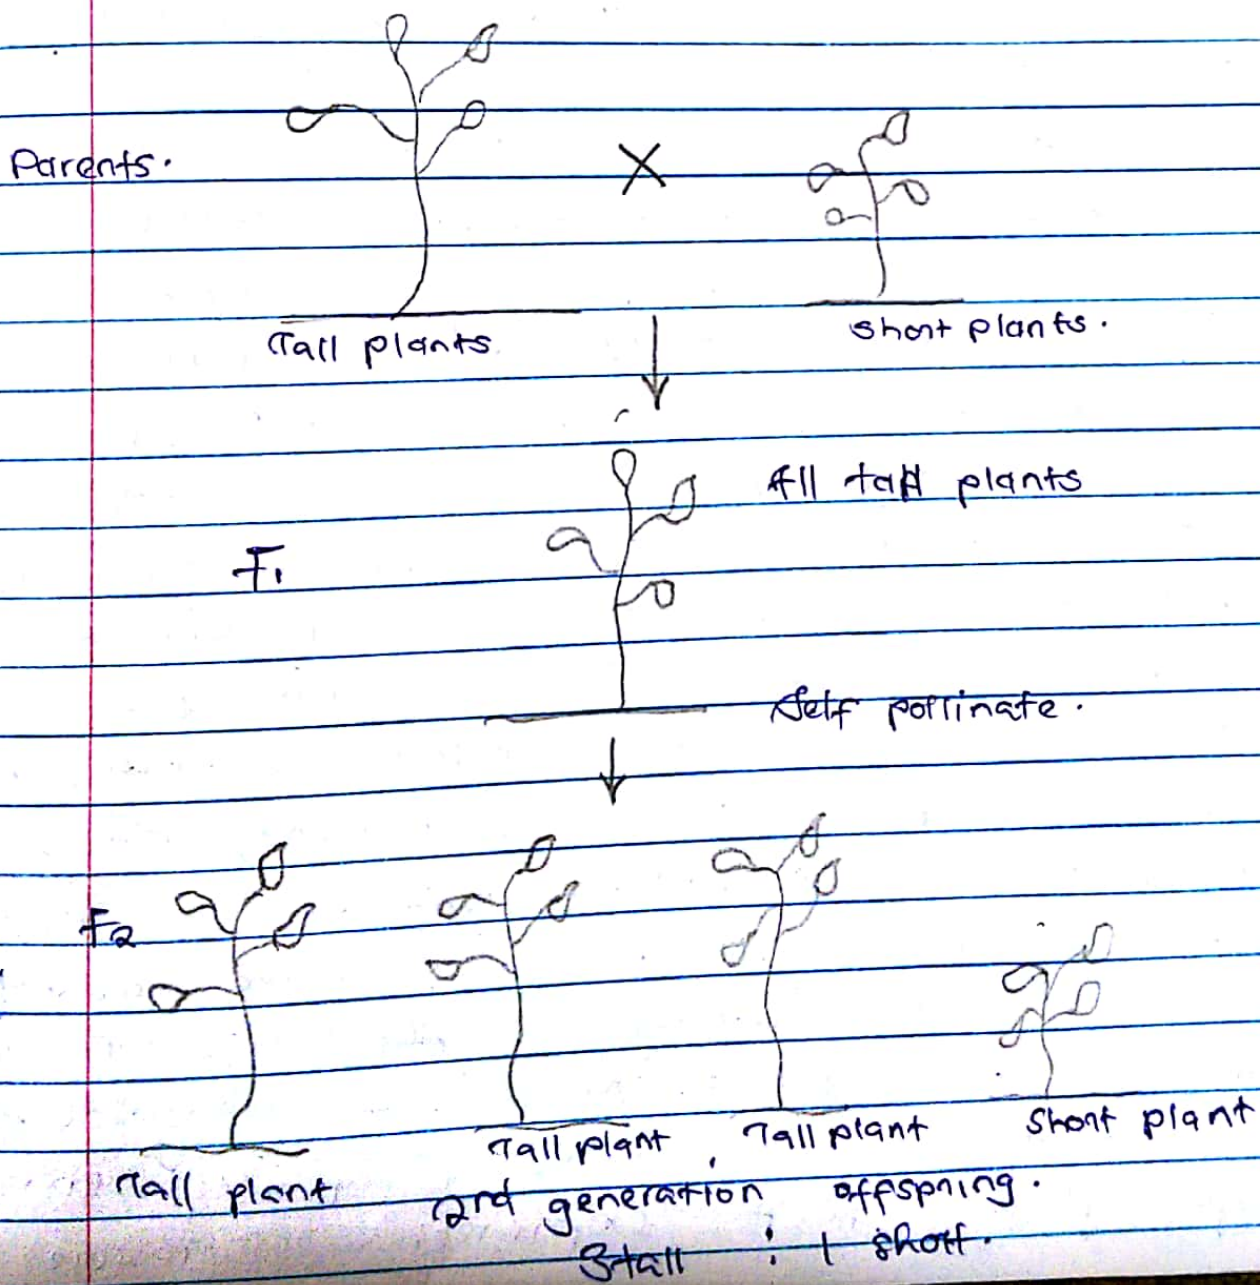 Parents.
X
Tall plants
Short plants.
All tall plants
F1
Self pollinate.
F2
Tall plant
Tall plant
Tall plant
Short plant
2nd generation offspring.
3tall : 1 short.